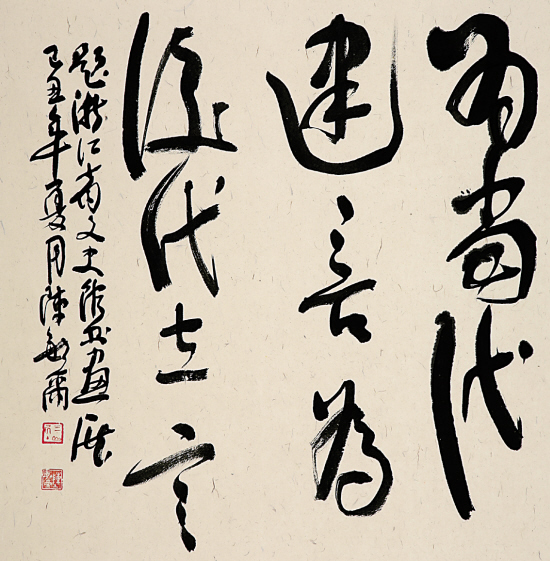 為當代
建言為
後代立言
題浙江省文史館書畫展
己丑年夏月陳敏爾